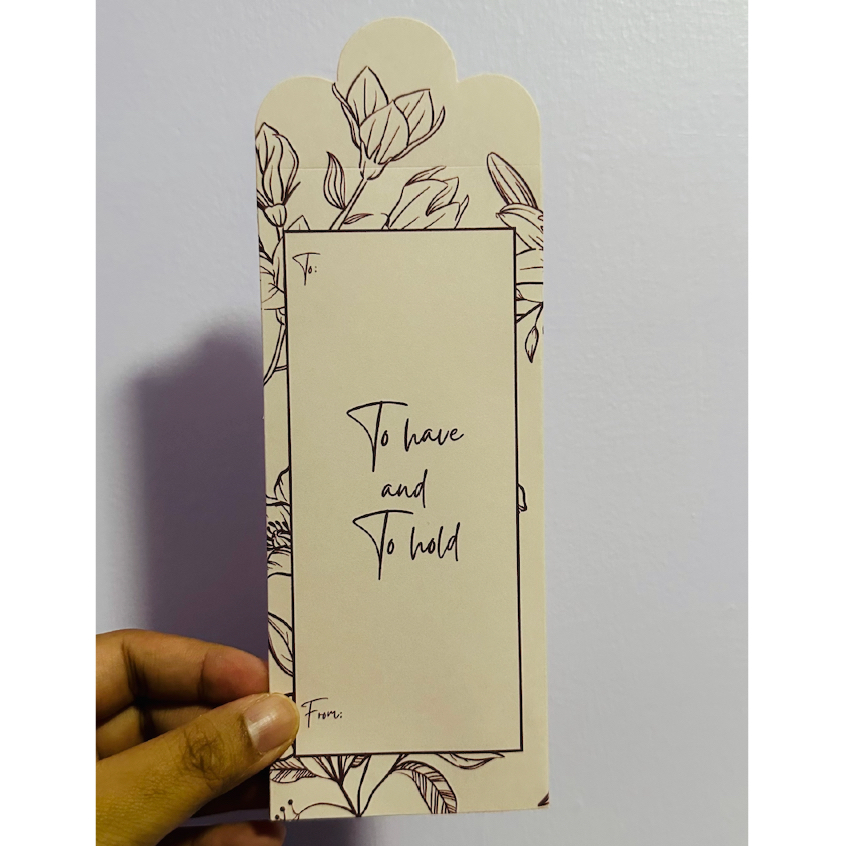 To:
To have
and
To hold
From: